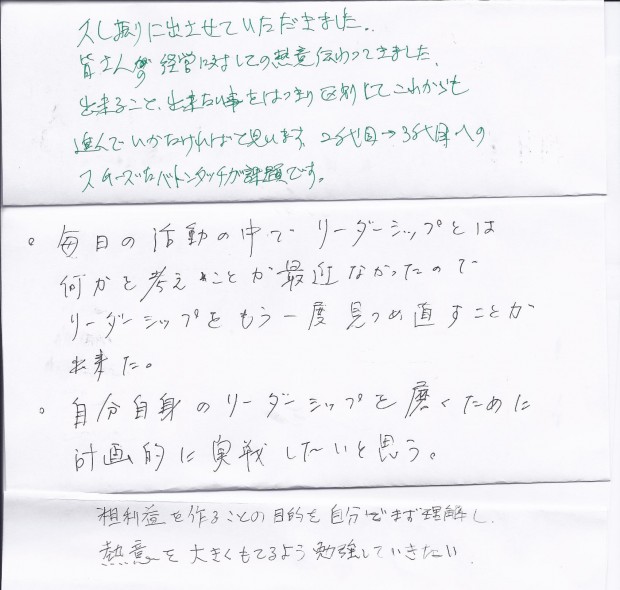 久し振りに出させていただきました。
皆さんの経営に対しての熱意伝わってきました。
出来ること、出来ない事をはっきり区別してこれからも
進んでいかなければと思います。2代目→3代目への
スムーズなバトンタッチが課題です。
。毎日の活動の中で リーダーシップとは
何かと考えることが最近なかったので
リーダーシップをもう一度見つめ直すことが
出来た。
。自分自身のリーダーシップを磨くために
計画的に実戦したいと思う。
粗利益を作ることの目的を自分でまず理解し、
熱意を大きくもてるよう勉強していきたい